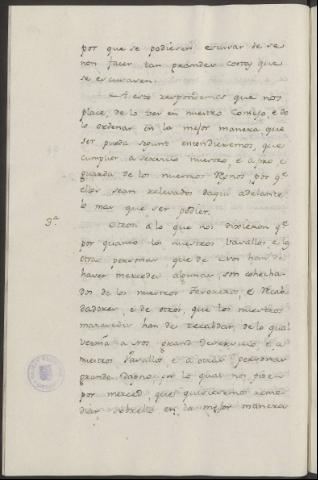 por que se podiesen escusar de se
non facer tan grandes costas que
se escusasen.
A esto respondemos que nos
place, de lo ver en nuestro Consejo, e de
lo ordenar en la mejor manera que
ser pueda segunt entendieremos, que
cumplier a servicio nuestro, e a pro e
guarda de los nuestros Regnos por qe
ellos sean relevados daqui adelante
lo mas que ser podier.
3ª
Otrosi a lo que nos dixieron qe
por quanto los nuestros Vasallos, e
otras personas que de nos han de
haver mercedes algunas, son cohecha-
dos de los nuestros Tesoreros, e Recab-
dadores, e de otros que los nuestros
maravedis han de recabdar, de lo qual
a nos grand deservicio e a
nuestros Vasallos e a otras personas
grande dagno, por lo qual nos
por merced que quisiesemos reme-
diar sobrello en la mejor manera